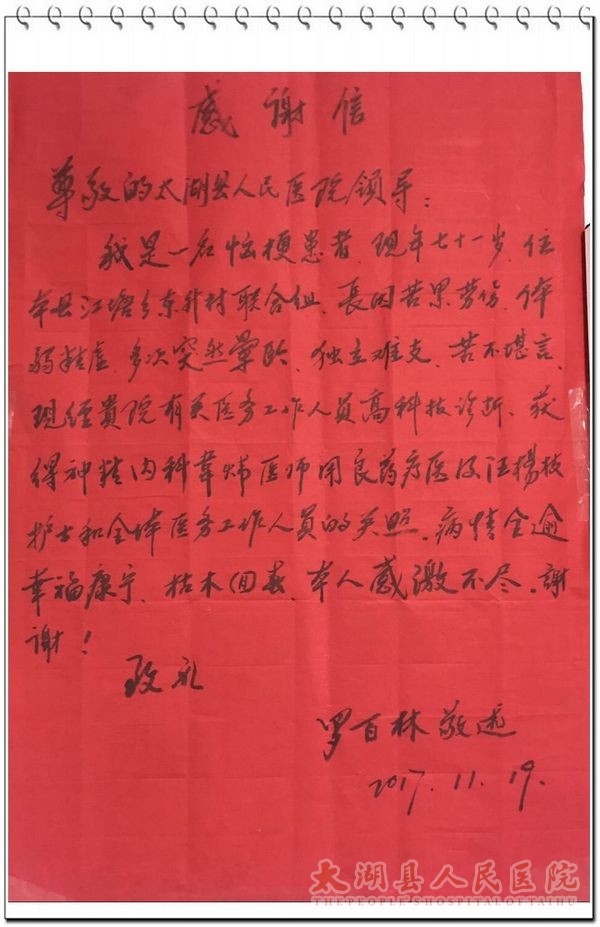 感谢信
尊敬的太湖县人民医院领导：
我是一名恼梗患者，现年七十一岁，住
本县江塘乡东升村联合组、長因苦累劳伤，体
弱精虚，多次突然晕卧，独立难支、苦不堪言、
现经貴院有关医务工作人员高科技诊断、获
得神精内科韋炜医师用良药疗医及汪楊枝
护士和全体医务工作人员的关照，病情全逾
幸福康宁、枯木回春、本人感激不尽。謝
谢！
致礼
罗百林敬述
2017.11.19.
太湖县人民医院
THEPEOPLE'SHOSPITALOFTAIHU